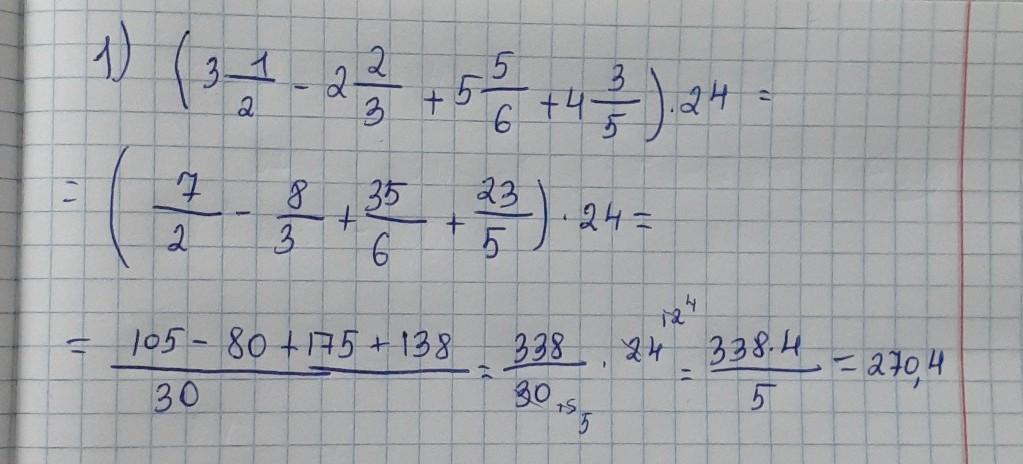 1) (3 1/2 - 2 2/3 + 5 5/6 + 4 3/5) · 24 =
= (7/2 - 8/3 + 35/6 + 23/5) · 24 =
= (105 - 80 + 175 + 138)/30 = 338/30 5 · 24 4 = (338·4)/5 = 270,4